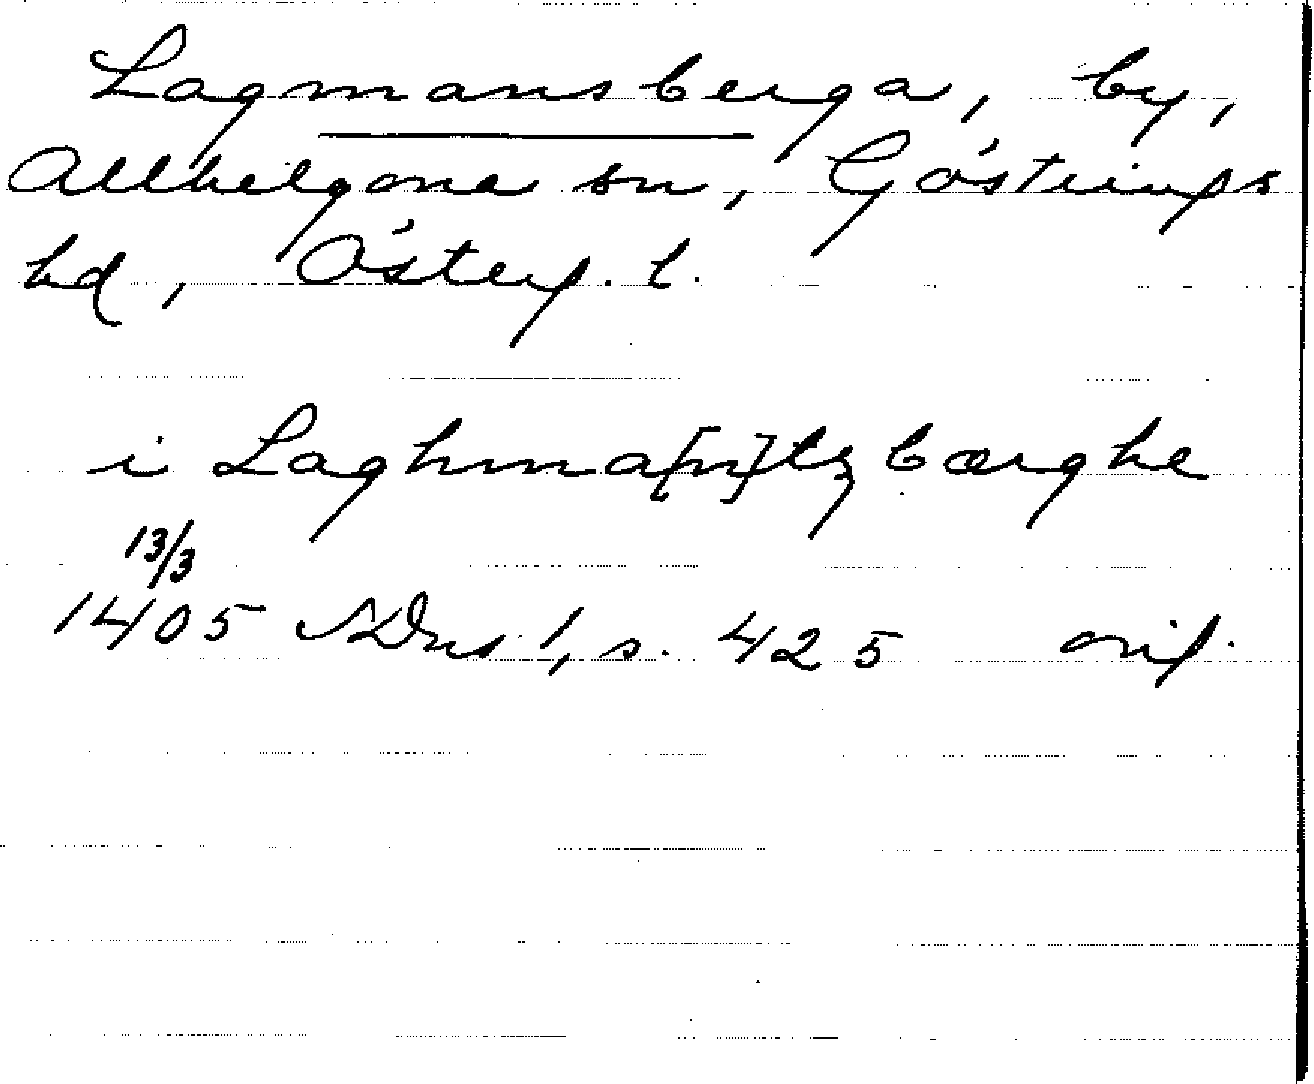 Lagmansberga, by,
Allhelgona sn, Göstrings
hd, Österg. l.
i Laghma[n]tzbærghe
13/3
1405 SDns 1, s. 425 orig.